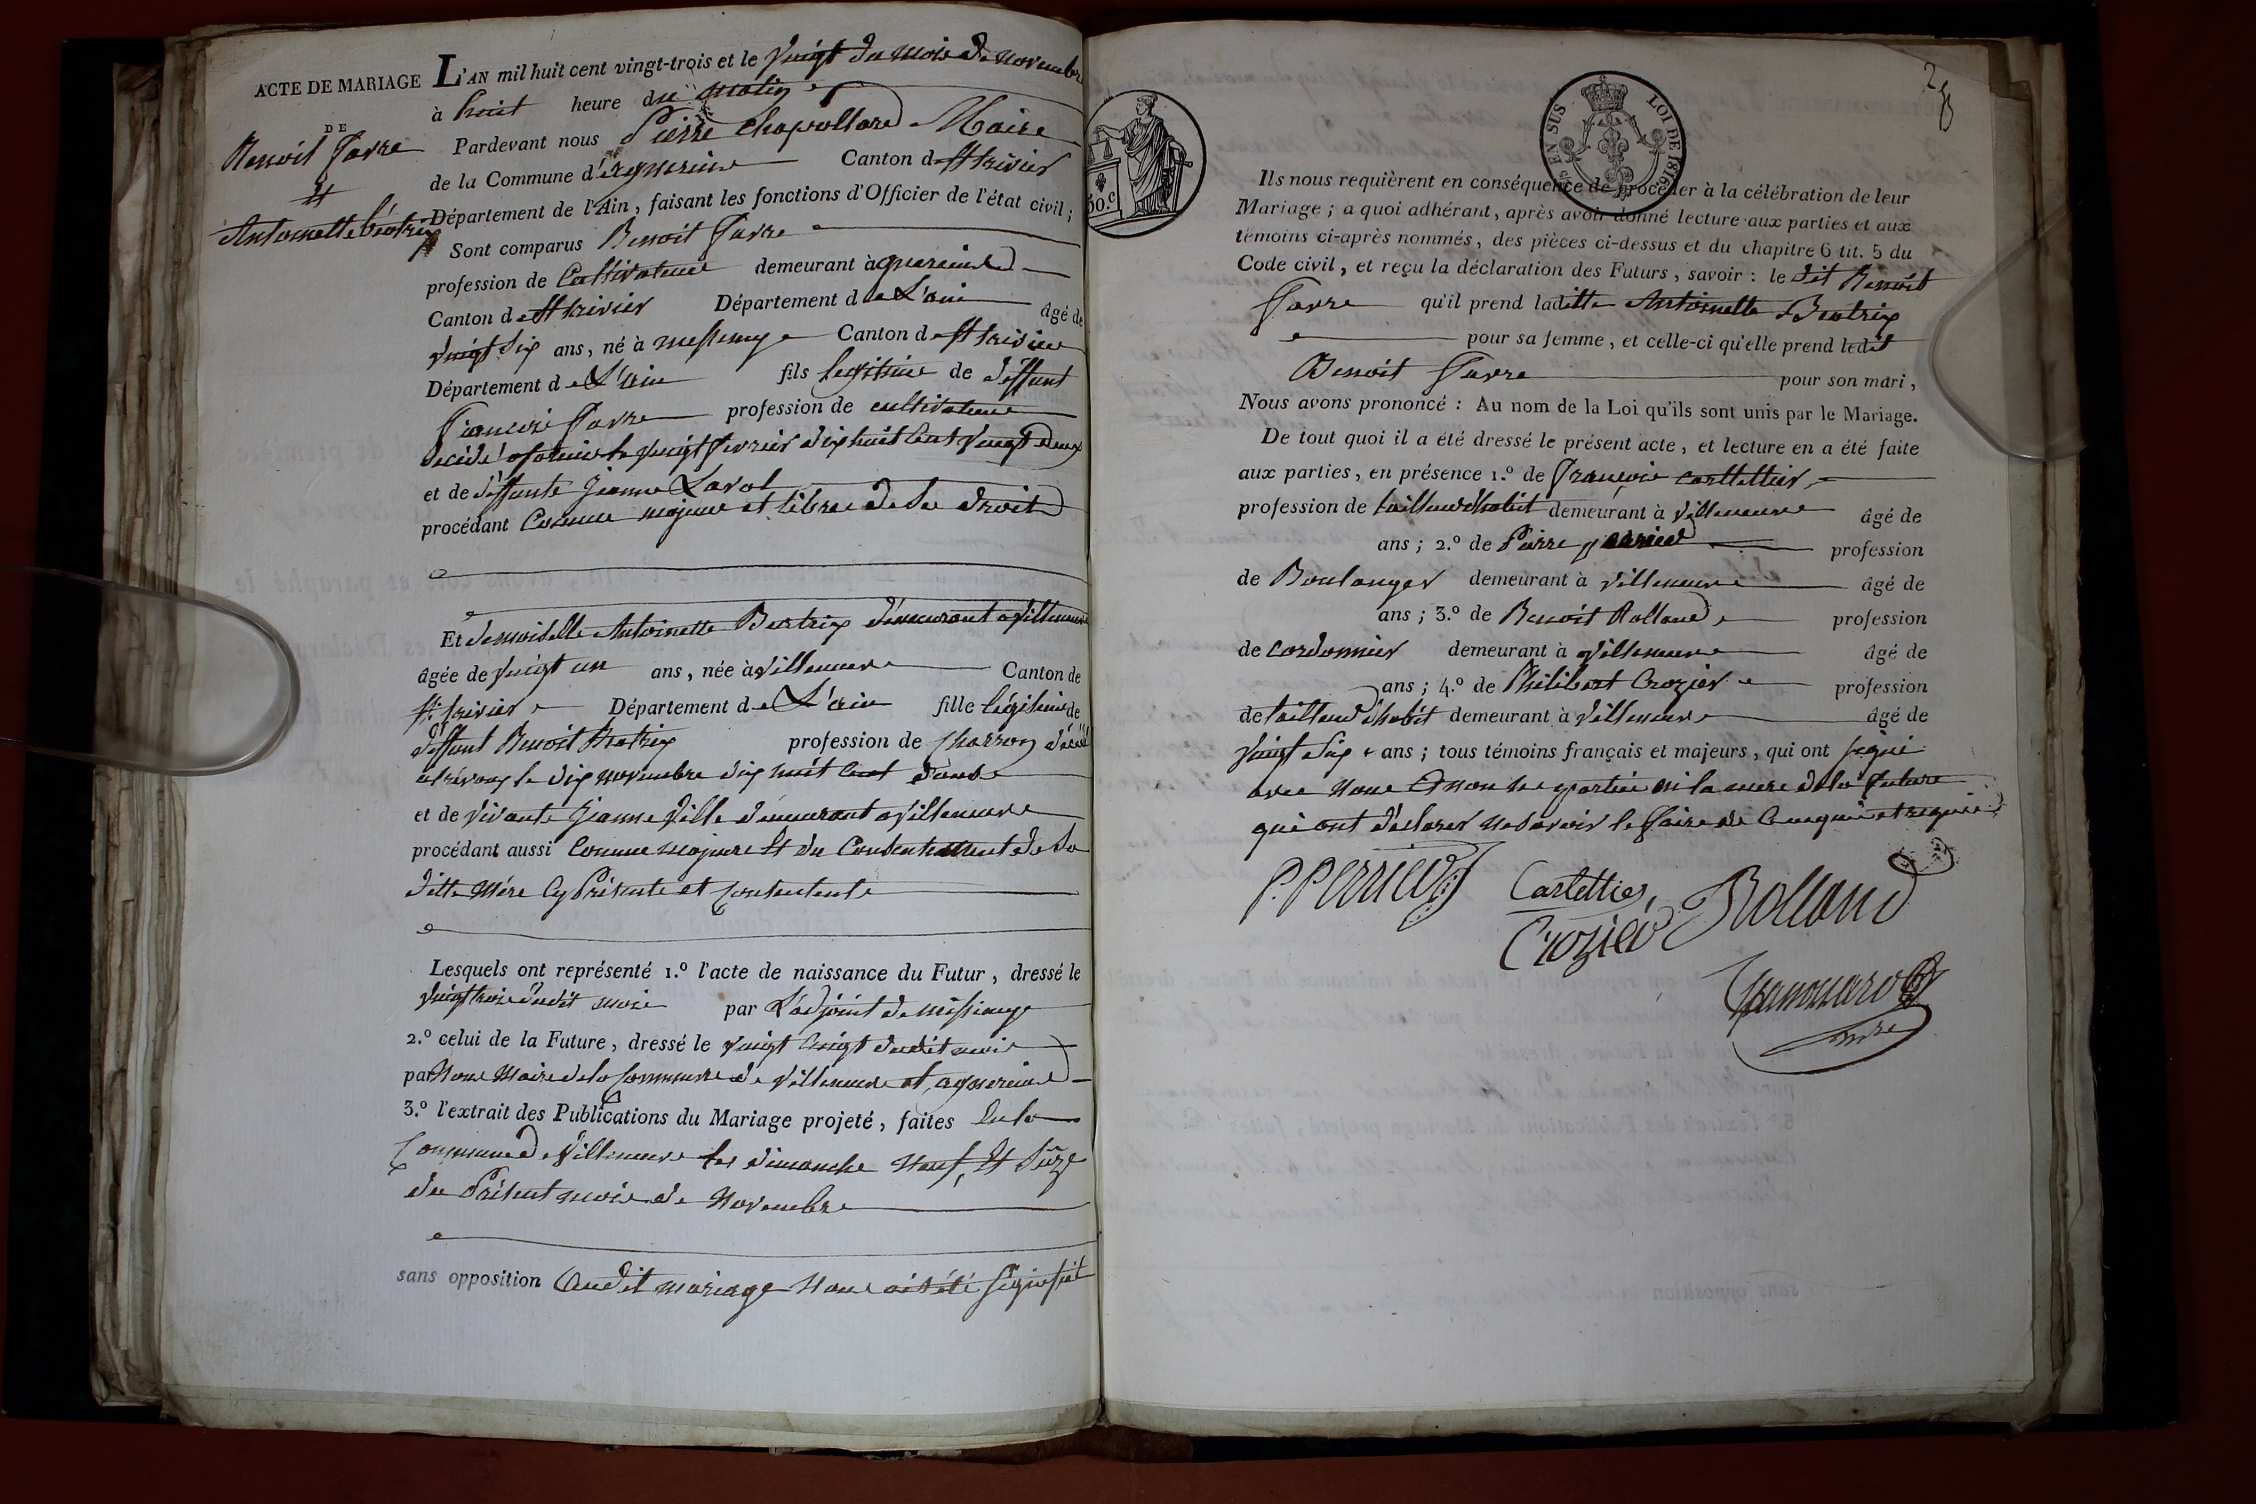 ACTE DE MARIAGE
DE
Benoit Favre
et
Antoinette béatrix
L'AN mil huit cent vingt-trois et le vingt du mois de novembre
à huit heure du matin
Pardevant nous Pierre Maire
de la Commune d'agnereins Canton de St trivier
Département de l'Ain, faisant les fonctions d'Officier de l'état civil;
Sont comparus Benoit Favre
profession de Cultivateur demeurant à agnereins
Canton de St trivier Département de L'ain âgé de
vingt six ans, né à messimy Canton de St trivier
Département de L'ain fils legitime de deffunt
Francois Favre profession de cultivateur
décédé le vingt fevrier dix huit Cent vingt deux
et de deffunte Jeanne Laval
procédant Comme majeur et libre de Ses droits
Et demoiselle Antoinette Beatrix demeurant a villeneuve
âgée de vingt un ans, née à villeneuve Canton de
St trivier Département de L'ain fille légitime de
deffunt Benoit Beatrix profession de charron décédé
a trévoux le dix novembre dix huit Cent
et de vivante Jeanne Ville demeurant a villeneuve
procédant aussi Comme majeure Et du Consentement de Sa
ditte Mére Cy Présente et Consentente
Lesquels ont représenté 1.º l'acte de naissance du Futur, dressé le
vingt trois dudit mois par L'adjoint de messimy
2.º celui de la Future, dressé le vingt dudit mois
par Nous Maire de la Commune de villeneuve et agnereins
3.º l'extrait des Publications du Mariage projeté, faites En la
Commune de villeneuve les dimanche Neuf Et Sèze
du Présent mois de Novembre
sans opposition Audit mariage Nous
28
EN SUS
LOI DE 1816
50.c
Ils nous requièrent en conséquence de procéder à la célébration de leur
Mariage; a quoi adhérant, après avoir donné lecture aux parties et aux
témoins ci-après nommés, des pièces ci-dessus et du chapitre 6 tit. 5 du
Code civil, et reçu la déclaration des Futurs, savoir: le dit Benoit
Favre qu'il prend laditte Antoinette Beatrix
pour sa femme, et celle-ci qu'elle prend ledit
Benoit Favre pour son mari,
Nous avons prononcé: Au nom de la Loi qu'ils sont unis par le Mariage.
De tout quoi il a été dressé le présent acte, et lecture en a été faite
aux parties, en présence 1.º de François
profession de tailleur d'habit demeurant à villeneuve âgé de
ans; 2.º de Pierre perrier profession
de Boulanger demeurant à villeneuve âgé de
ans; 3.º de Benoit Rolland profession
de cordonnier demeurant à villeneuve âgé de
ans; 4.º de Philibert Crozier profession
de tailleur d'habit demeurant à villeneuve âgé de
vingt Six ans; tous témoins français et majeurs, qui ont Signé
avec Nous Et non les parties ni la mere de la future
qui ont déclarer ne Savoir le faire de Ce enquis et requis
P. Perrier
Carlettier
Rolland
Crozier
mre